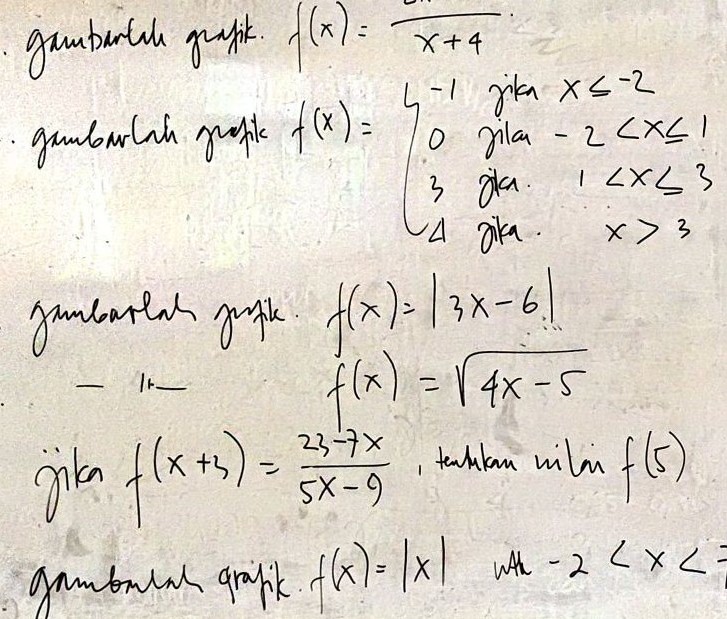 gambarlah grafik. f(x) = ─── x+4
gambarlah grafik f(x) = { -1 jika x ≤ -2
0 jika -2 < x ≤ 1
3 jika. 1 < x ≤ 3
4 jika. x > 3
gambarlah grafik. f(x) = |3x-6|
— 11 — f(x) = √(4x-5)
jika f(x+3) = (23-7x)/(5x-9), tentukan nilai f(5)
gambarlah grafik. f(x) = |x| utk -2 < x <